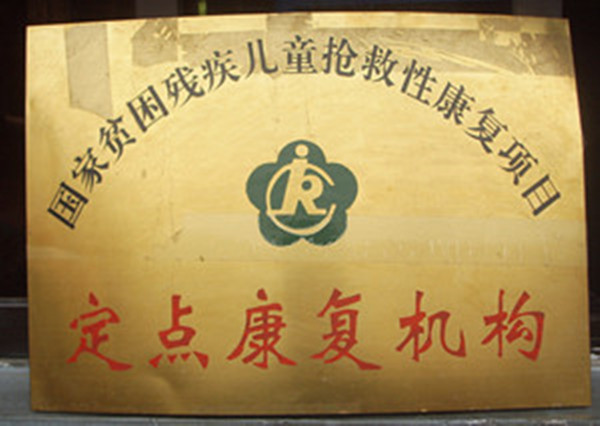 国家贫困残疾儿童抢救性康复项目
定点康复机构